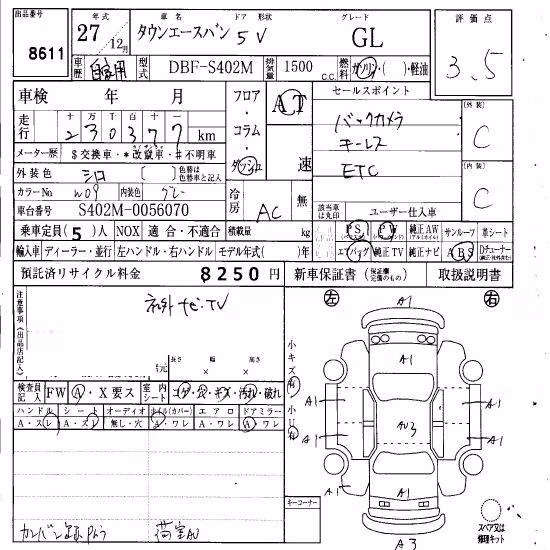 出品番号 年式 車名 ドア 形状 グレード 評価点
8611 27年12月 タウンエースバン 5V GL 3.5
車歴 自家用 型式 DBF-S402M 排気量 1500 c.c. 燃料 ガソリン・( )・軽油
車検 年 月 フロア・コラム・ダッシュ AT 速 セールスポイント 外装 C
走行 十万千百十一 230377 km バックカメラ
メーター歴 $交換車・*改竄車・#不明車 キーレス
外装色 シロ 色替は色替車と記入 ETC 内装 C
カラーNo W09 内装色 グレー 冷房 AC 無
車台番号 S402M-0056070 該当装備は丸印 ユーザー仕入車
乗車定員(5)人 NOX 適合・不適合 積載量 kg PS PW 純正AW サンルーフ 革シート
輸入車 ディーラー・並行 左ハンドル・右ハンドル モデル年式( )年 エアバッグ 純正TV 純正ナビ ABS Dチューナー
預託済リサイクル料金 8250円 新車保証書 取扱説明書
注意事項(出品店記入) 社外ナビ.TV 左 A1 右
長さ × 幅 × 高さ
小キズ有 小U有 A1
検査員記入 FW A・X要ス 室内シート コゲ・穴・キズ・汚れ・破れ
ハンドル シート オーディオ ホイル(カバー) エアロ ドアミラー
A・スレ A・スレ 無し・穴 A・ワレ A・ワレ A・ワレ
A1 A1 AU3 A1 A1
A1 A1 A1
キーコーナー スペア又は修理キット
荷室AU
A3